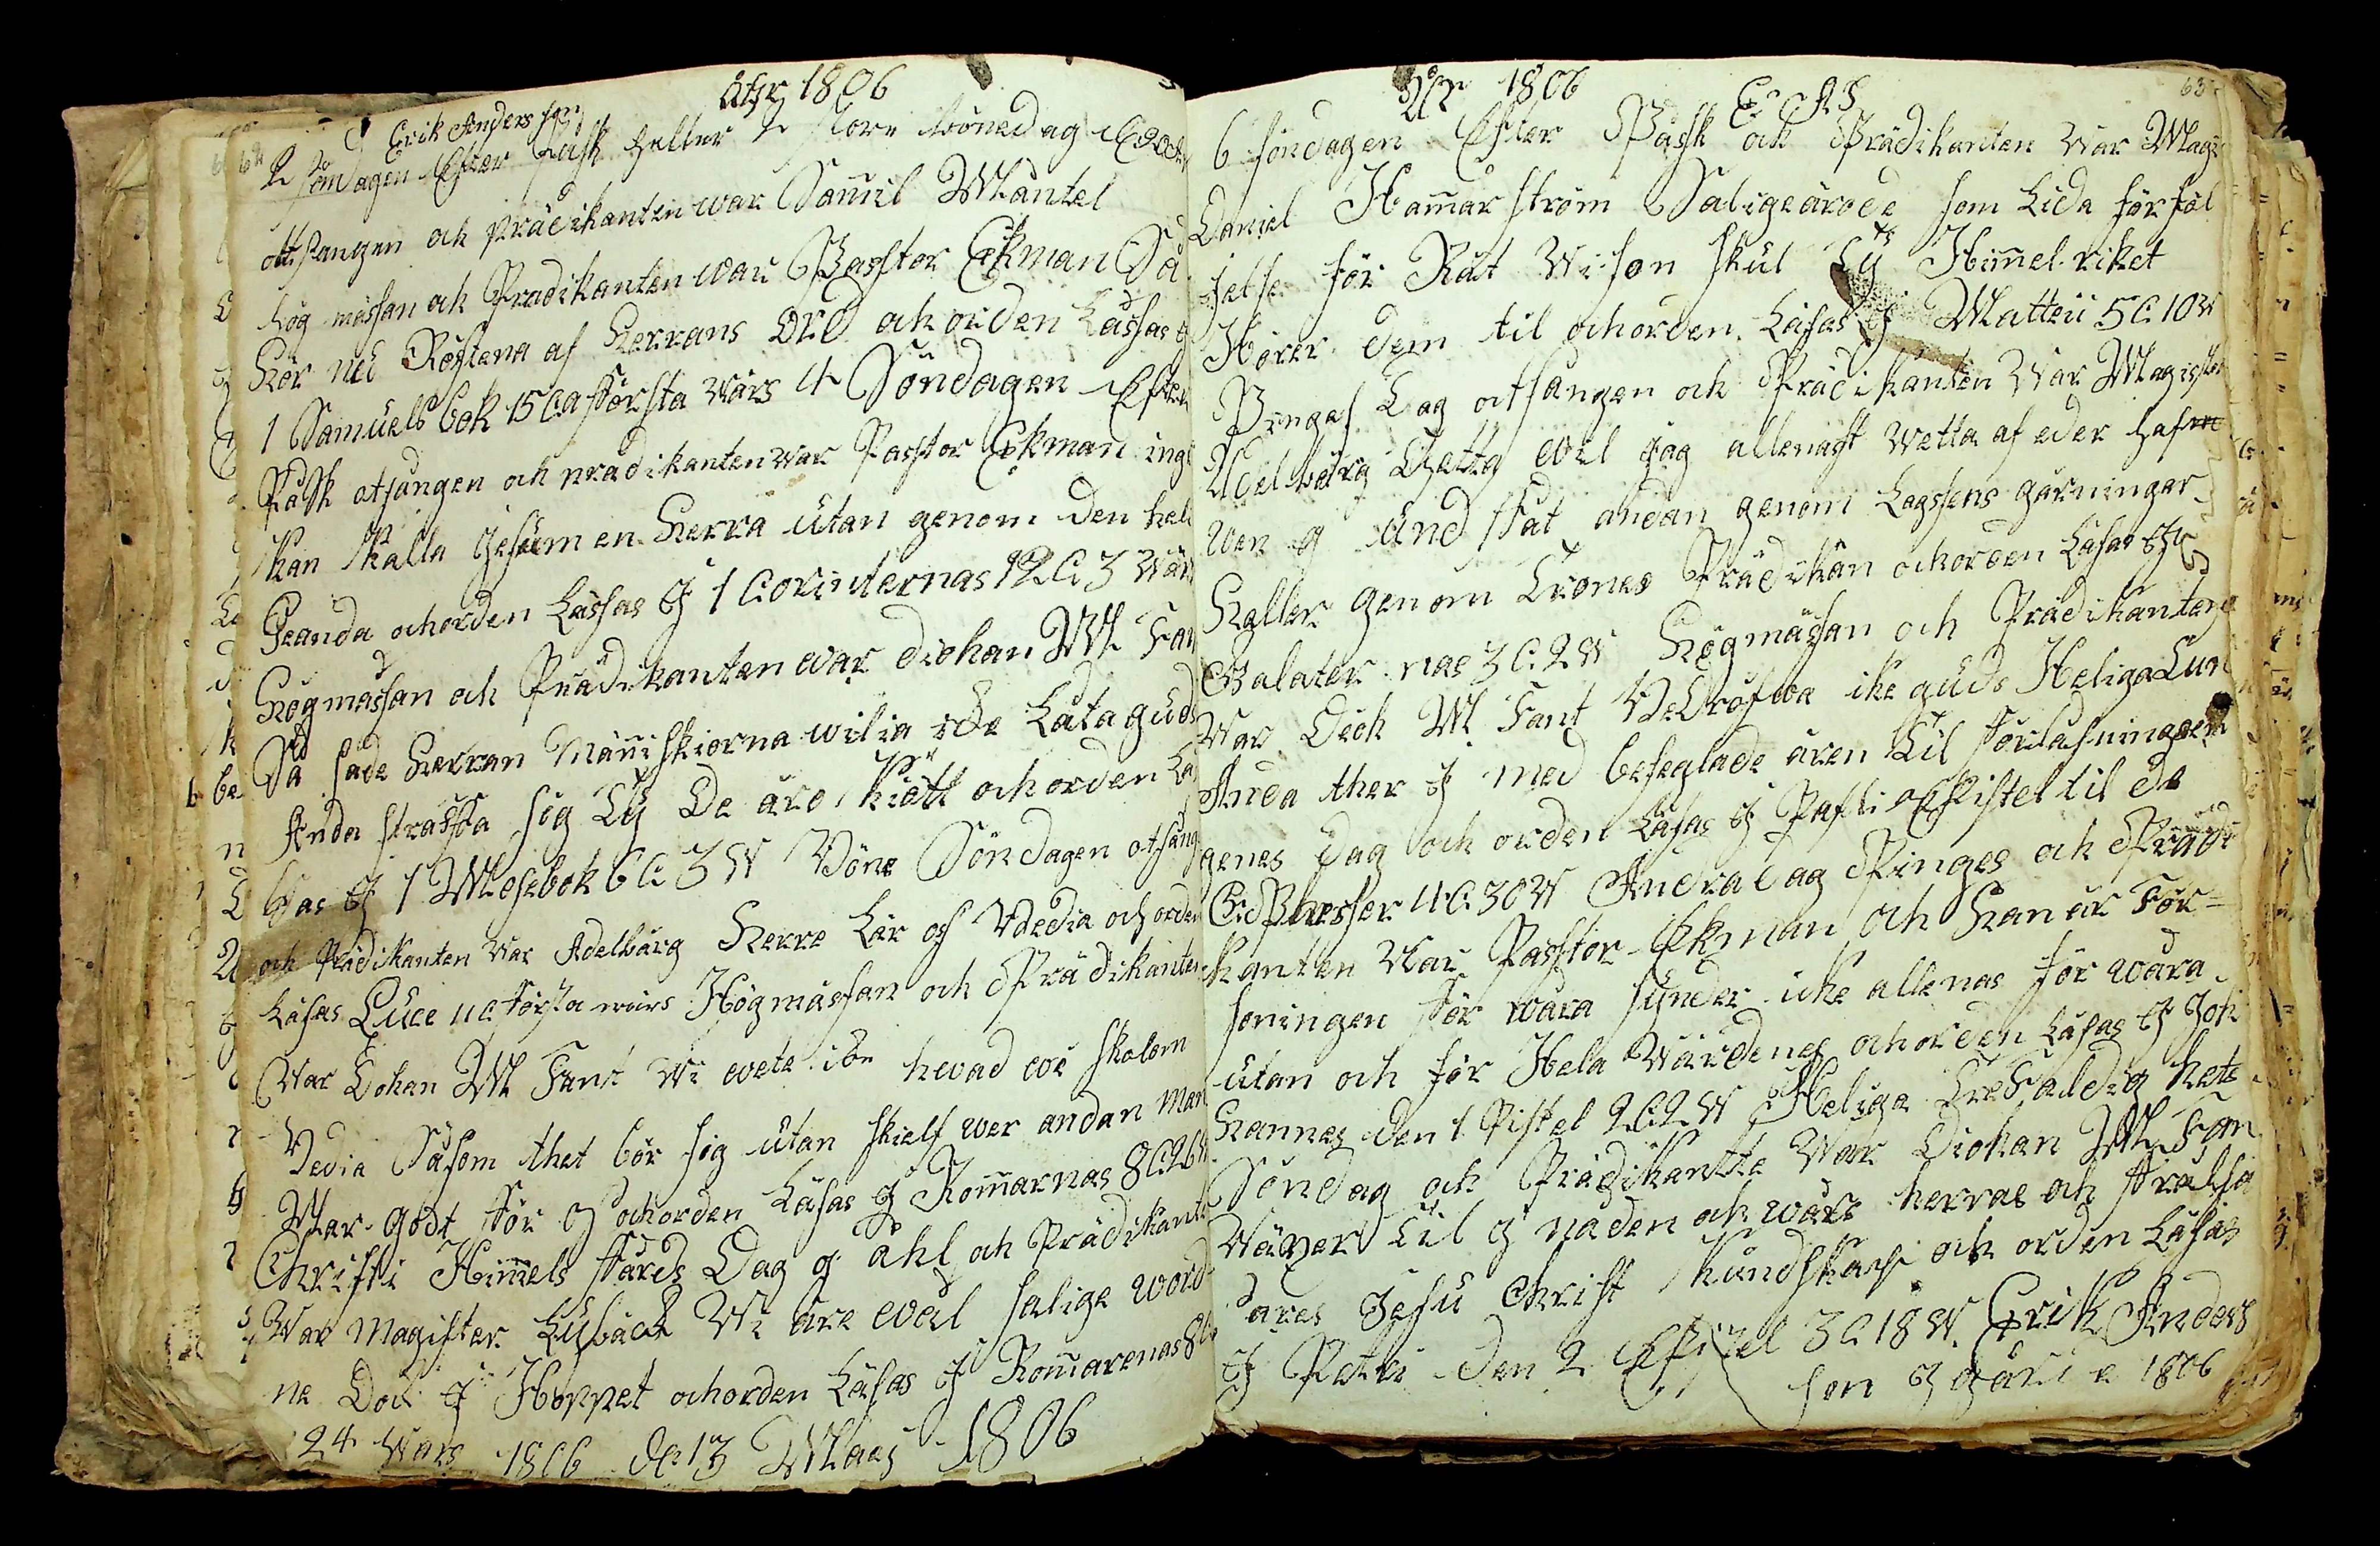 Åhr 1806
Erik Anders son
2 söndagen Efter Påsk heller 2 store bönedag
ottsangen och prädikanten war Samil Mäntel
hög mässan och Prädikanten war Passtor Ekman Så
Hör nu Röstena af Herrans Ord och orden Låssas
1 Samuels bok 15 Ca första wärs 4 Söndagen Efter
Påsk otsangen och prädikanten war Passtor Ekman ingen
kan kalla Jesum en Herra utan genom den hel
Geanda och orden Lässas g 1 Corinternas 12 C 3 wärs
Högmässan och Prädikanten war diohan M Fan
Så sade Herran Människiorna wilia ike Låta guds
Anda straffa sig Ty De äro kiött och orden Lä
sas g 1 Mosebok 6 C 3 W Böne Söndagen otsang
och Prädikanten war Adelbärg Herre Lär os bedia och orden
Läsas Luce 11 C första wärs Högmässan och Prädikanten
war Dohan M Fant Wi wete ike hwad wi skolom
bedia Såsom thet bör sig utan sielf wer andan man
Mar godt för os och orden Läsas g Romarnas 8 C 26 W
Christi Himmels färds Dag g ähl och Prädikant
War Magister Lysback Wi äre wäl salige word
ne Dock g Hoppet och orden Läsas g Romarenas 8 C
24 wärs 1806 de 13 Maaj 1806
63
Åhr 1806 E A S
6 söndagen Efter Påssk och Prädikanten war Magi
Daniel Hammar ström Salige äro de som Lida för föl
jelse för Rät wison skul Ty Himmel riket
Hörer dem til och orden Läsas g Matteii 5 C 10 W
Pingas Dag otsangen och Prädikanten war Magister
Adelbärg Thetta wil jag allenast wetta af eder hafwe
wen g und fåt andan genom Lagsens gärningar
Heller genom Trones Prädikan och orden Läsas g
Galater nas 3 C 2 W Högmässan och Prädikanten
war Dioh M Fant Bedröfwa ike guds Heliga
Anda ther g med beseglade ären Til förlåsningen
genes dag och orden Läsas g Pafli Epistel til de
Epheser 4 C 30 W Andra dag Pinges och Prädi
kanten war Passtor Ekman och Han är För=
soningen för wåra synder ike allenas för wåra
utan och för Hela Wärdenes och orden Läsas g Joh
hannes den 1 Pistel 2 C 2 W Heliga Trefaldig hets
Söndag och Prädikante war Diohan M Fan
Wäxer Til g nåden och wåre herras och frälsa
ares Jesu Christ kundskap och orden Läsas
g Petri den 2 Epistel 3 C 18 W Erik Anders
son 1806